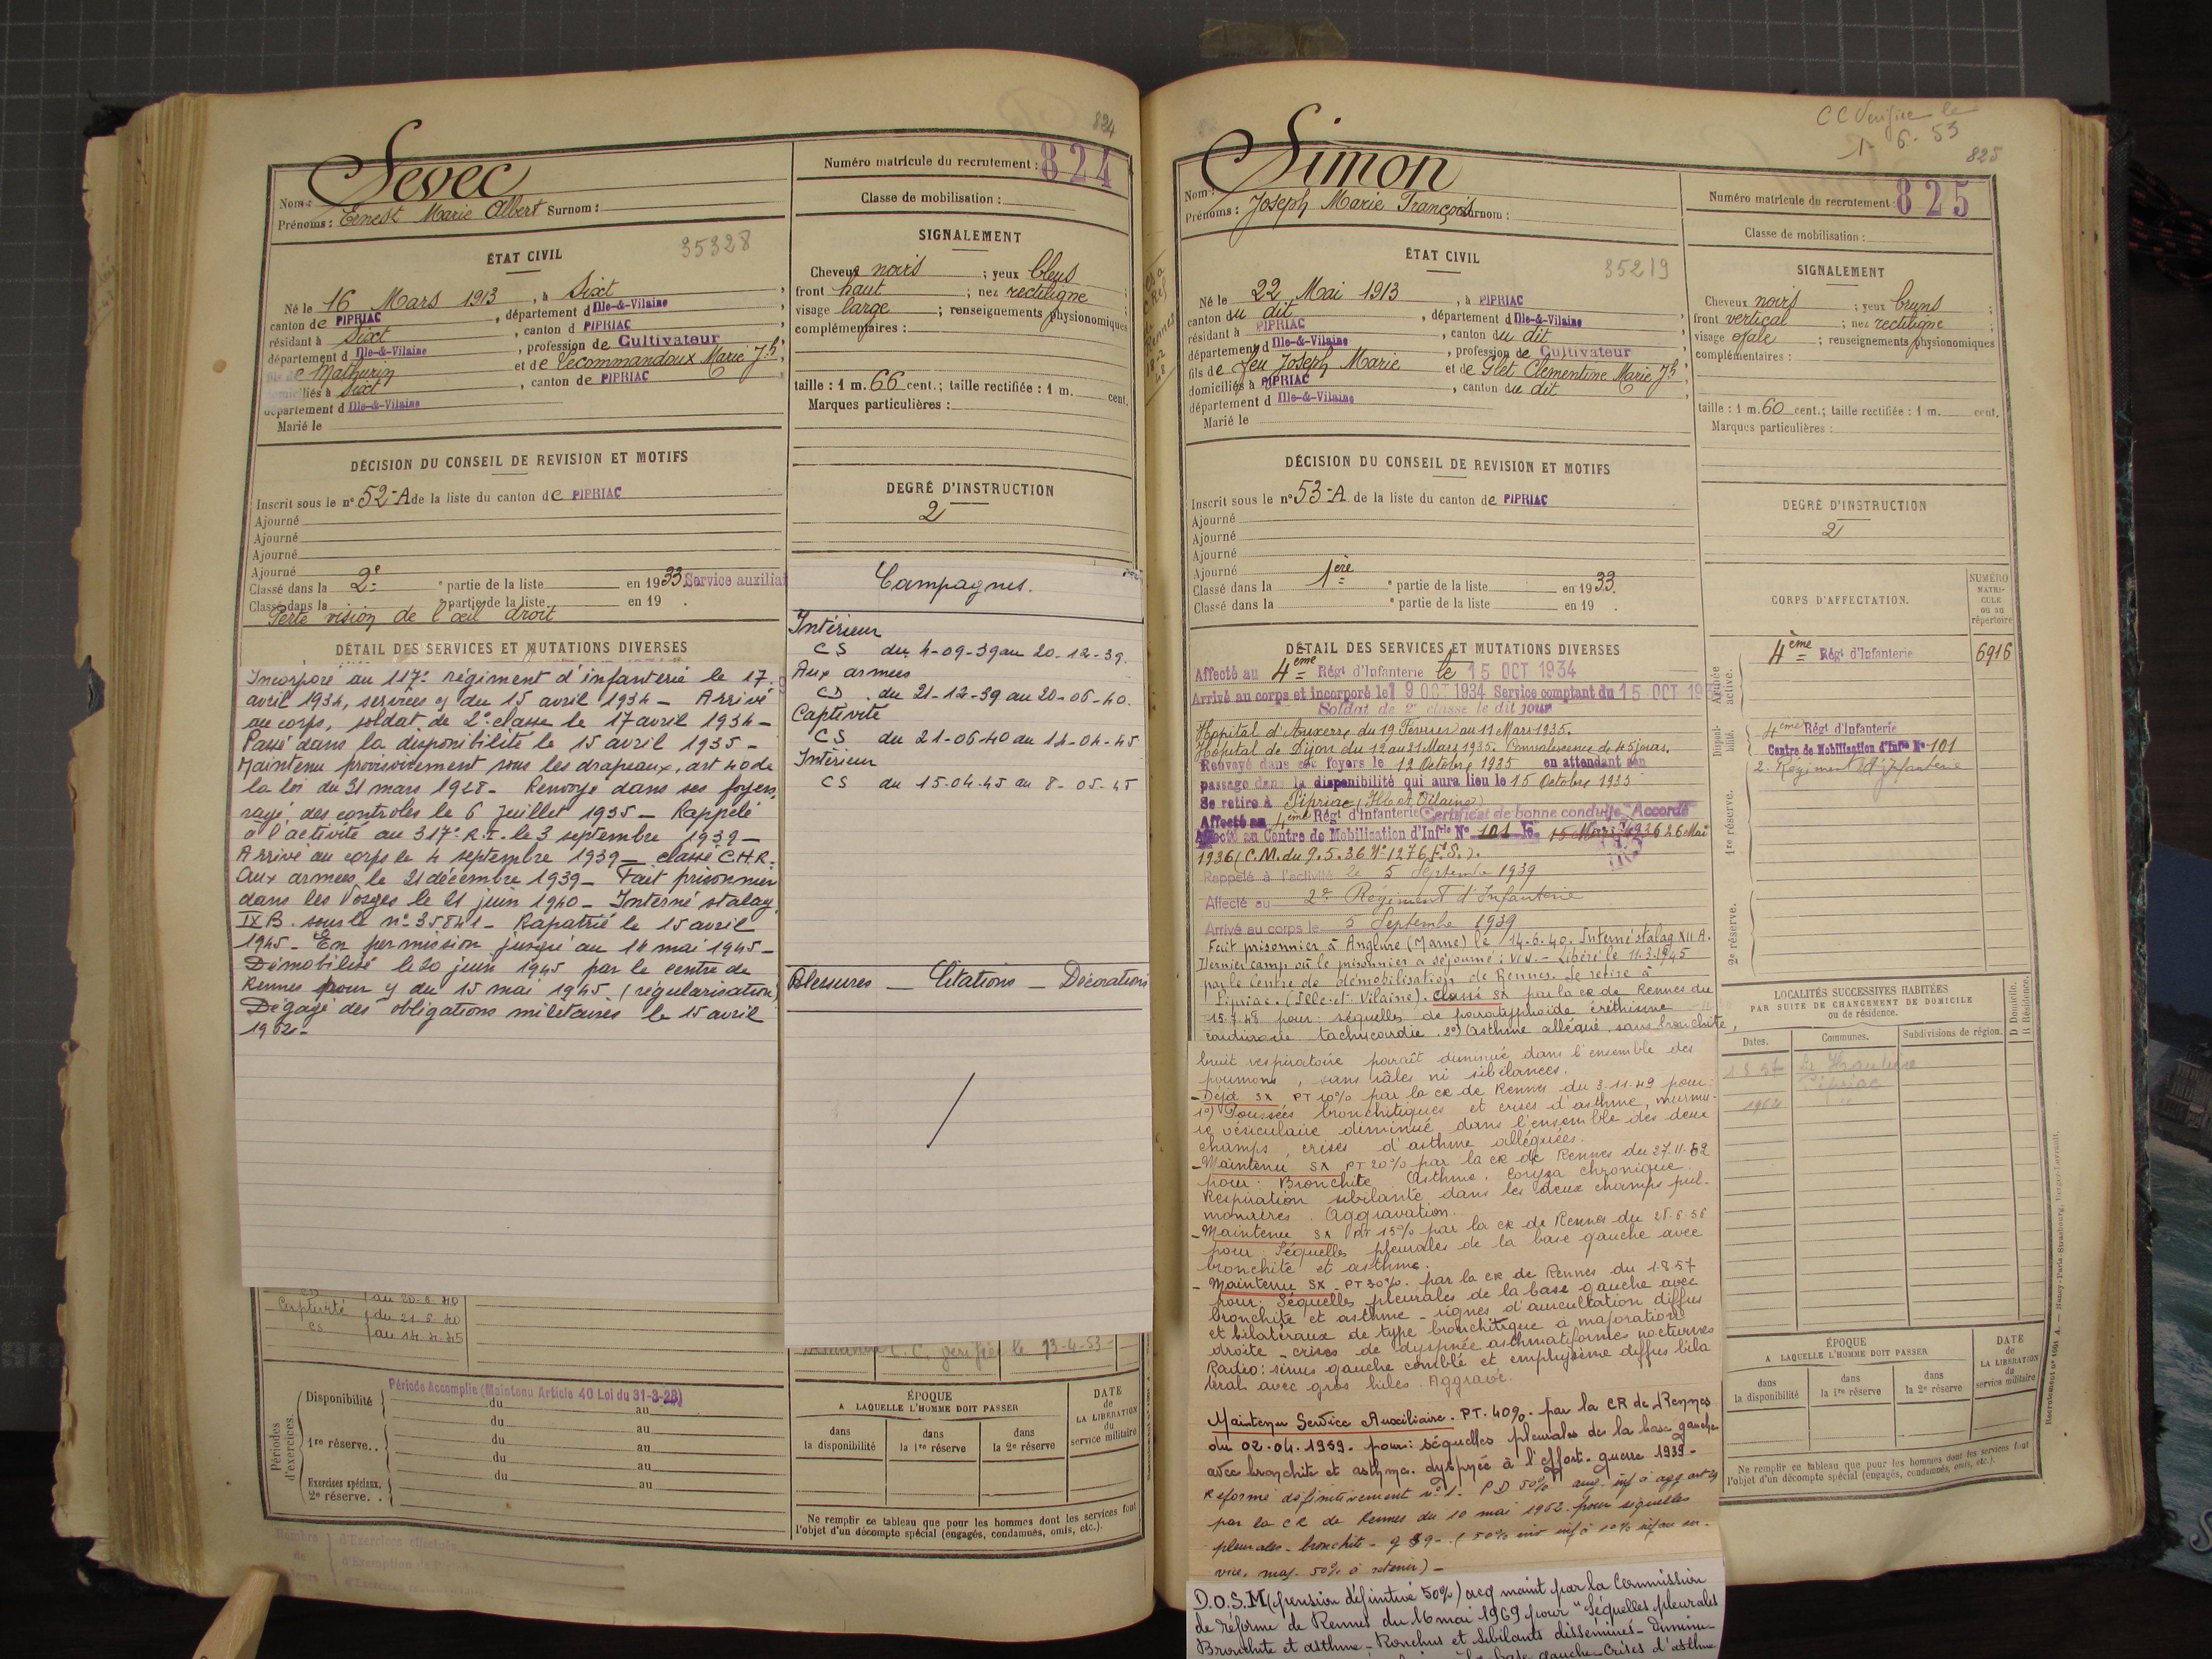 824
Numéro matricule du recrutement : 824
Nom : Sevec
Prénoms : Ernest Marie Albert Surnom :
Classe de mobilisation :
ÉTAT CIVIL
35328
Né le 16 Mars 1913, à Sixt
canton de PIPRIAC, département d Ille-&-Vilaine
résidant à Sixt, canton d PIPRIAC
département d Ille-&-Vilaine, profession de Cultivateur
fils de Mathurin et de Lecommandoux Marie Jh
domiciliés à Sixt, canton de PIPRIAC
département d Ille-&-Vilaine
Marié le
SIGNALEMENT
Cheveux noirs ; yeux bleus
front haut ; nez rectiligne
visage large ; renseignements physionomiques
complémentaires :
taille : 1 m. 66 cent.; taille rectifiée : 1 m. cent.
Marques particulières :
DÉCISION DU CONSEIL DE REVISION ET MOTIFS
Inscrit sous le n° 52-A de la liste du canton de PIPRIAC
Ajourné
Ajourné
Ajourné
Ajourné
Classé dans la 2e partie de la liste en 1933. Service auxiliai
Classé dans la e partie de la liste en 19 .
Perte vision de l'œil droit
DEGRÉ D'INSTRUCTION
2
DÉTAIL DES SERVICES ET MUTATIONS DIVERSES
Incorporé au 117e régiment d'infanterie le 17
avril 1934, services y du 15 avril 1934 - Arrivé
au corps, soldat de 2e classe le 17 avril 1934 -
Passé dans la disponibilité le 15 avril 1935 -
Maintenu provisoirement sous les drapeaux, art 40 de
la loi du 31 mars 1928 - Renvoyé dans ses foyers,
rayé des contrôles le 6 Juillet 1935 - Rappelé
à l'activité au 317e R.I. le 3 septembre 1939 -
Arrivé au corps le 4 septembre 1939 - classé C.H.R.
Aux armées le 21 décembre 1939 - Fait prisonnier
dans les Vosges le 21 juin 1940 - Interné stalag
IX B. sous le n° 35841 - Rapatrié le 15 avril
1945 - En permission jusqu'au 14 mai 1945 -
Démobilisé le 20 juin 1945 par le centre de
Rennes pour y du 15 mai 1945. (régularisation)
Dégagé des obligations militaires le 15 avril
1962 -
Campagnes.
Intérieur
CS du 4-09-39 au 20-12-39.
Aux armées
CD du 21-12-39 au 20-06-40.
Captivité
CS du 21-06-40 au 14-04-45
Intérieur
CS du 15-04-45 au 8-05-45
Blessures - Citations - Décorations
au 20-6 40
Captivité du 21 6 40
CS au 14 4 45
C.C. vérifié le 13-4-53-
Périodes d'exercices.
Disponibilité
Période Accomplie (Maintenu Article 40 Loi du 31-3-28)
du au
du au
1re réserve..
du au
du au
Exercices spéciaux,
2e réserve. .
du au
ÉPOQUE
A LAQUELLE L'HOMME DOIT PASSER
dans la disponibilité
dans la 1re réserve
dans la 2e réserve
DATE de LA LIBÉRATION du service militaire
Ne remplir ce tableau que pour les hommes dont les services font
l'objet d'un décompte spécial (engagés, condamnés, omis, etc.).
Nombre de jours
d'Exercices effectués
CC Vérifiée le
1-6-53
825
Numéro matricule du recrutement : 825
Nom : Simon
Prénoms : Joseph Marie François Surnom :
Classe de mobilisation :
ÉTAT CIVIL
35219
Né le 22 Mai 1913, à PIPRIAC
canton du dit, département d Ille-&-Vilaine
résidant à PIPRIAC, canton du dit
département d Ille-&-Vilaine, profession de Cultivateur
fils de Feu Joseph Marie et de Glet Clémentine Marie Jh
domiciliés à PIPRIAC, canton du dit
département d Ille-&-Vilaine
Marié le
SIGNALEMENT
Cheveux noirs ; yeux bruns
front vertical ; nez rectiligne
visage ovale ; renseignements physionomiques
complémentaires :
taille : 1 m. 60 cent.; taille rectifiée : 1 m. cent.
Marques particulières :
DÉCISION DU CONSEIL DE REVISION ET MOTIFS
Inscrit sous le n° 53-A de la liste du canton de PIPRIAC
Ajourné
Ajourné
Ajourné
Ajourné
Classé dans la 1ère e partie de la liste en 1933.
Classé dans la e partie de la liste en 19 .
DEGRÉ D'INSTRUCTION
2
CORPS D'AFFECTATION.
NUMÉRO MATRICULE ou au répertoire
Armée active.
4ème Régt d'Infanterie 6916
Disponibilité.
4ème Régt d'Infanterie
Centre de Mobilisation d'Infie N° 101
2e Régiment d'Infanterie
1re réserve.
2e réserve.
DÉTAIL DES SERVICES ET MUTATIONS DIVERSES
Affecté au 4ème Régt d'Infanterie le 15 OCT 1934
Arrivé au corps et incorporé le 19 OCT 1934 Service comptant du 15 OCT 19
Soldat de 2e classe le dit jour
Hôpital d'Auxerre du 19 Février au 11 Mars 1935.
Hôpital de Dijon du 12 au 21 Mars 1935. Convalescence de 45 jours.
Renvoyé dans ses foyers le 12 Octobre 1935 en attendant son
passage dans la disponibilité qui aura lieu le 15 Octobre 1935
Se retire à Pipriac (Ille et Vilaine)
Affecté au 4ème Régt d'Infanterie Certificat de bonne conduite Accordé
Affecté au Centre de Mobilisation d'Infie N° 101 le 15 Mars 1936 26 Mai
1936 (C.M. du 9.5.36 N° 1276 Ft S.).
Rappelé à l'activité le 5 Septembre 1939
Affecté au 2e Régiment d'Infanterie
Arrivé au corps le 5 Septembre 1939
Fait prisonnier à Anglure (Marne) le 14.6.40. Interné stalag XII A.
Dernier camp où le prisonnier a séjourné : VI.. - Libéré le 11.3.1945
par le Centre de démobilisation de Rennes. Se retire à
Pipriac. (Ille-et-Vilaine). Classé SX par la CR de Rennes du
15.7.48 pour: séquelles de paratyphoïde éréthisme
cardiaque tachycardie. 2°) Asthme allégué, sans bronchite,
bruit respiratoire paraît diminué dans l'ensemble des
poumons, sans râles ni sibilances.
- Déjà SX PT 10% par la CR de Rennes du 3.11.49 pour:
1°) Poussées bronchitiques et crises d'asthme, murmu-
re vésiculaire diminué dans l'ensemble des deux
champs, crises d'asthme alléguées.
- Maintenu SX PT 20% par la CR de Rennes du 27.11.52
pour: Bronchite. Asthme. Coryza chronique.
Respiration sibilante dans les deux champs pul-
monaires. Aggravation.
- Maintenu SX PT 15% par la CR de Rennes du 28.6.56
pour: Séquelles pleurales de la base gauche avec
bronchite et asthme.
- Maintenu SX - PT 30%. par la CR de Rennes du 1.8.57
pour: Séquelles pleurales de la base gauche avec
bronchite et asthme - signes d'auscultation diffus
et bilatéraux de type bronchitique à majoration
droite - crises de dyspnée asthmatiformes nocturnes
Radio: sinus gauche comblé et emphysème diffus bila
téral avec gros hiles. Aggravé.
Maintenu Service Auxiliaire. PT. 40%. par la CR de Rennes
du 02.04.1959. pour: séquelles pleurales de la base gauche
avec bronchite et asthme. dyspnée à l'effort. guerre 1939-
Réformé définitivement n° 1. PD 50%
par la CR de Rennes du 10 mai 1962 pour séquelles
pleurales - bronchite - g 39 -
vice, maj. 50% à retenir) -
D.O.S.M (pension définitive 50%) acq maint par la Commission
de réforme de Rennes du 16 mai 1969 pour "Séquelles pleurales
Bronchite et asthme - Ronchus et Sibilants disséminés - Diminu-
base gauche - Crises d'asthme
LOCALITÉS SUCCESSIVES HABITÉES
PAR SUITE DE CHANGEMENT DE DOMICILE
ou de résidence.
Dates.
Communes.
Subdivisions de région.
D Domicile. R Résidence.
1 8 57
Pipriac
1962
ÉPOQUE
A LAQUELLE L'HOMME DOIT PASSER
dans la disponibilité
dans la 1re réserve
dans la 2e réserve
DATE de LA LIBÉRATION du service militaire
Ne remplir ce tableau que pour les hommes dont les services font
l'objet d'un décompte spécial (engagés, condamnés, omis, etc.).